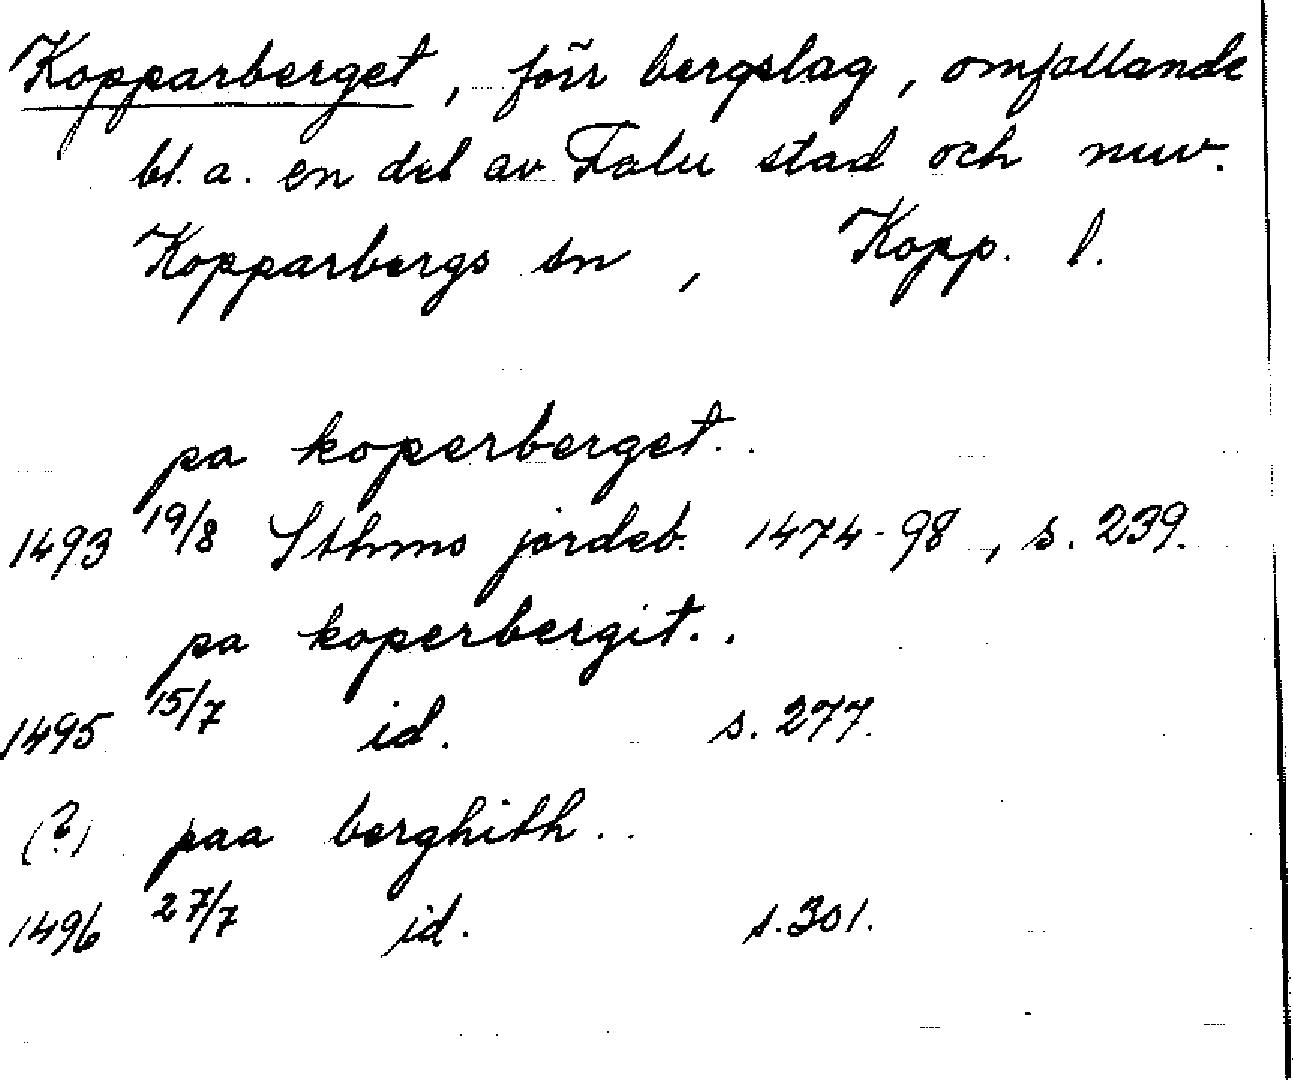 Kopparberget, förr bergslag, omfattande
bl. a. en del av Falu stad och nuv.
Kopparbergs sn, Kopp. l.
pa koperberget..
1493 19/8 Sthms jordeb. 1474-98, s. 239.
pa koperbergit..
1495 15/7 id. s. 277.
(?) paa berghith..
1496 27/7 id. s. 301.